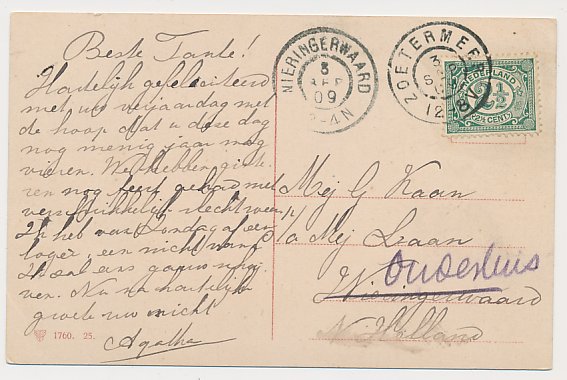 Beste Tante!
Hartelijk gefeliciteerd
met uw verjaardag met
de hoop dat u deze dag
nog menig jaar mag
vieren. We hebben giste-
ren nog feest gehad met
verschrikkelijk slecht weer.
Ik heb van Zondag af een
logee, een nicht van
Ik zal ons gauw nog
ven. Nu na hartelijke
groete uw nicht
Agatha
1760. 25.
WIERINGERWAARD
3
SEP
09
2-4N
ZOETERMEER
3
SEP
12
8V
NEDERLAND
2½
2½ CENT
Mej G Kaan
p/a Mej Laan
Oudesluis
Wieringerwaard
N. Holland